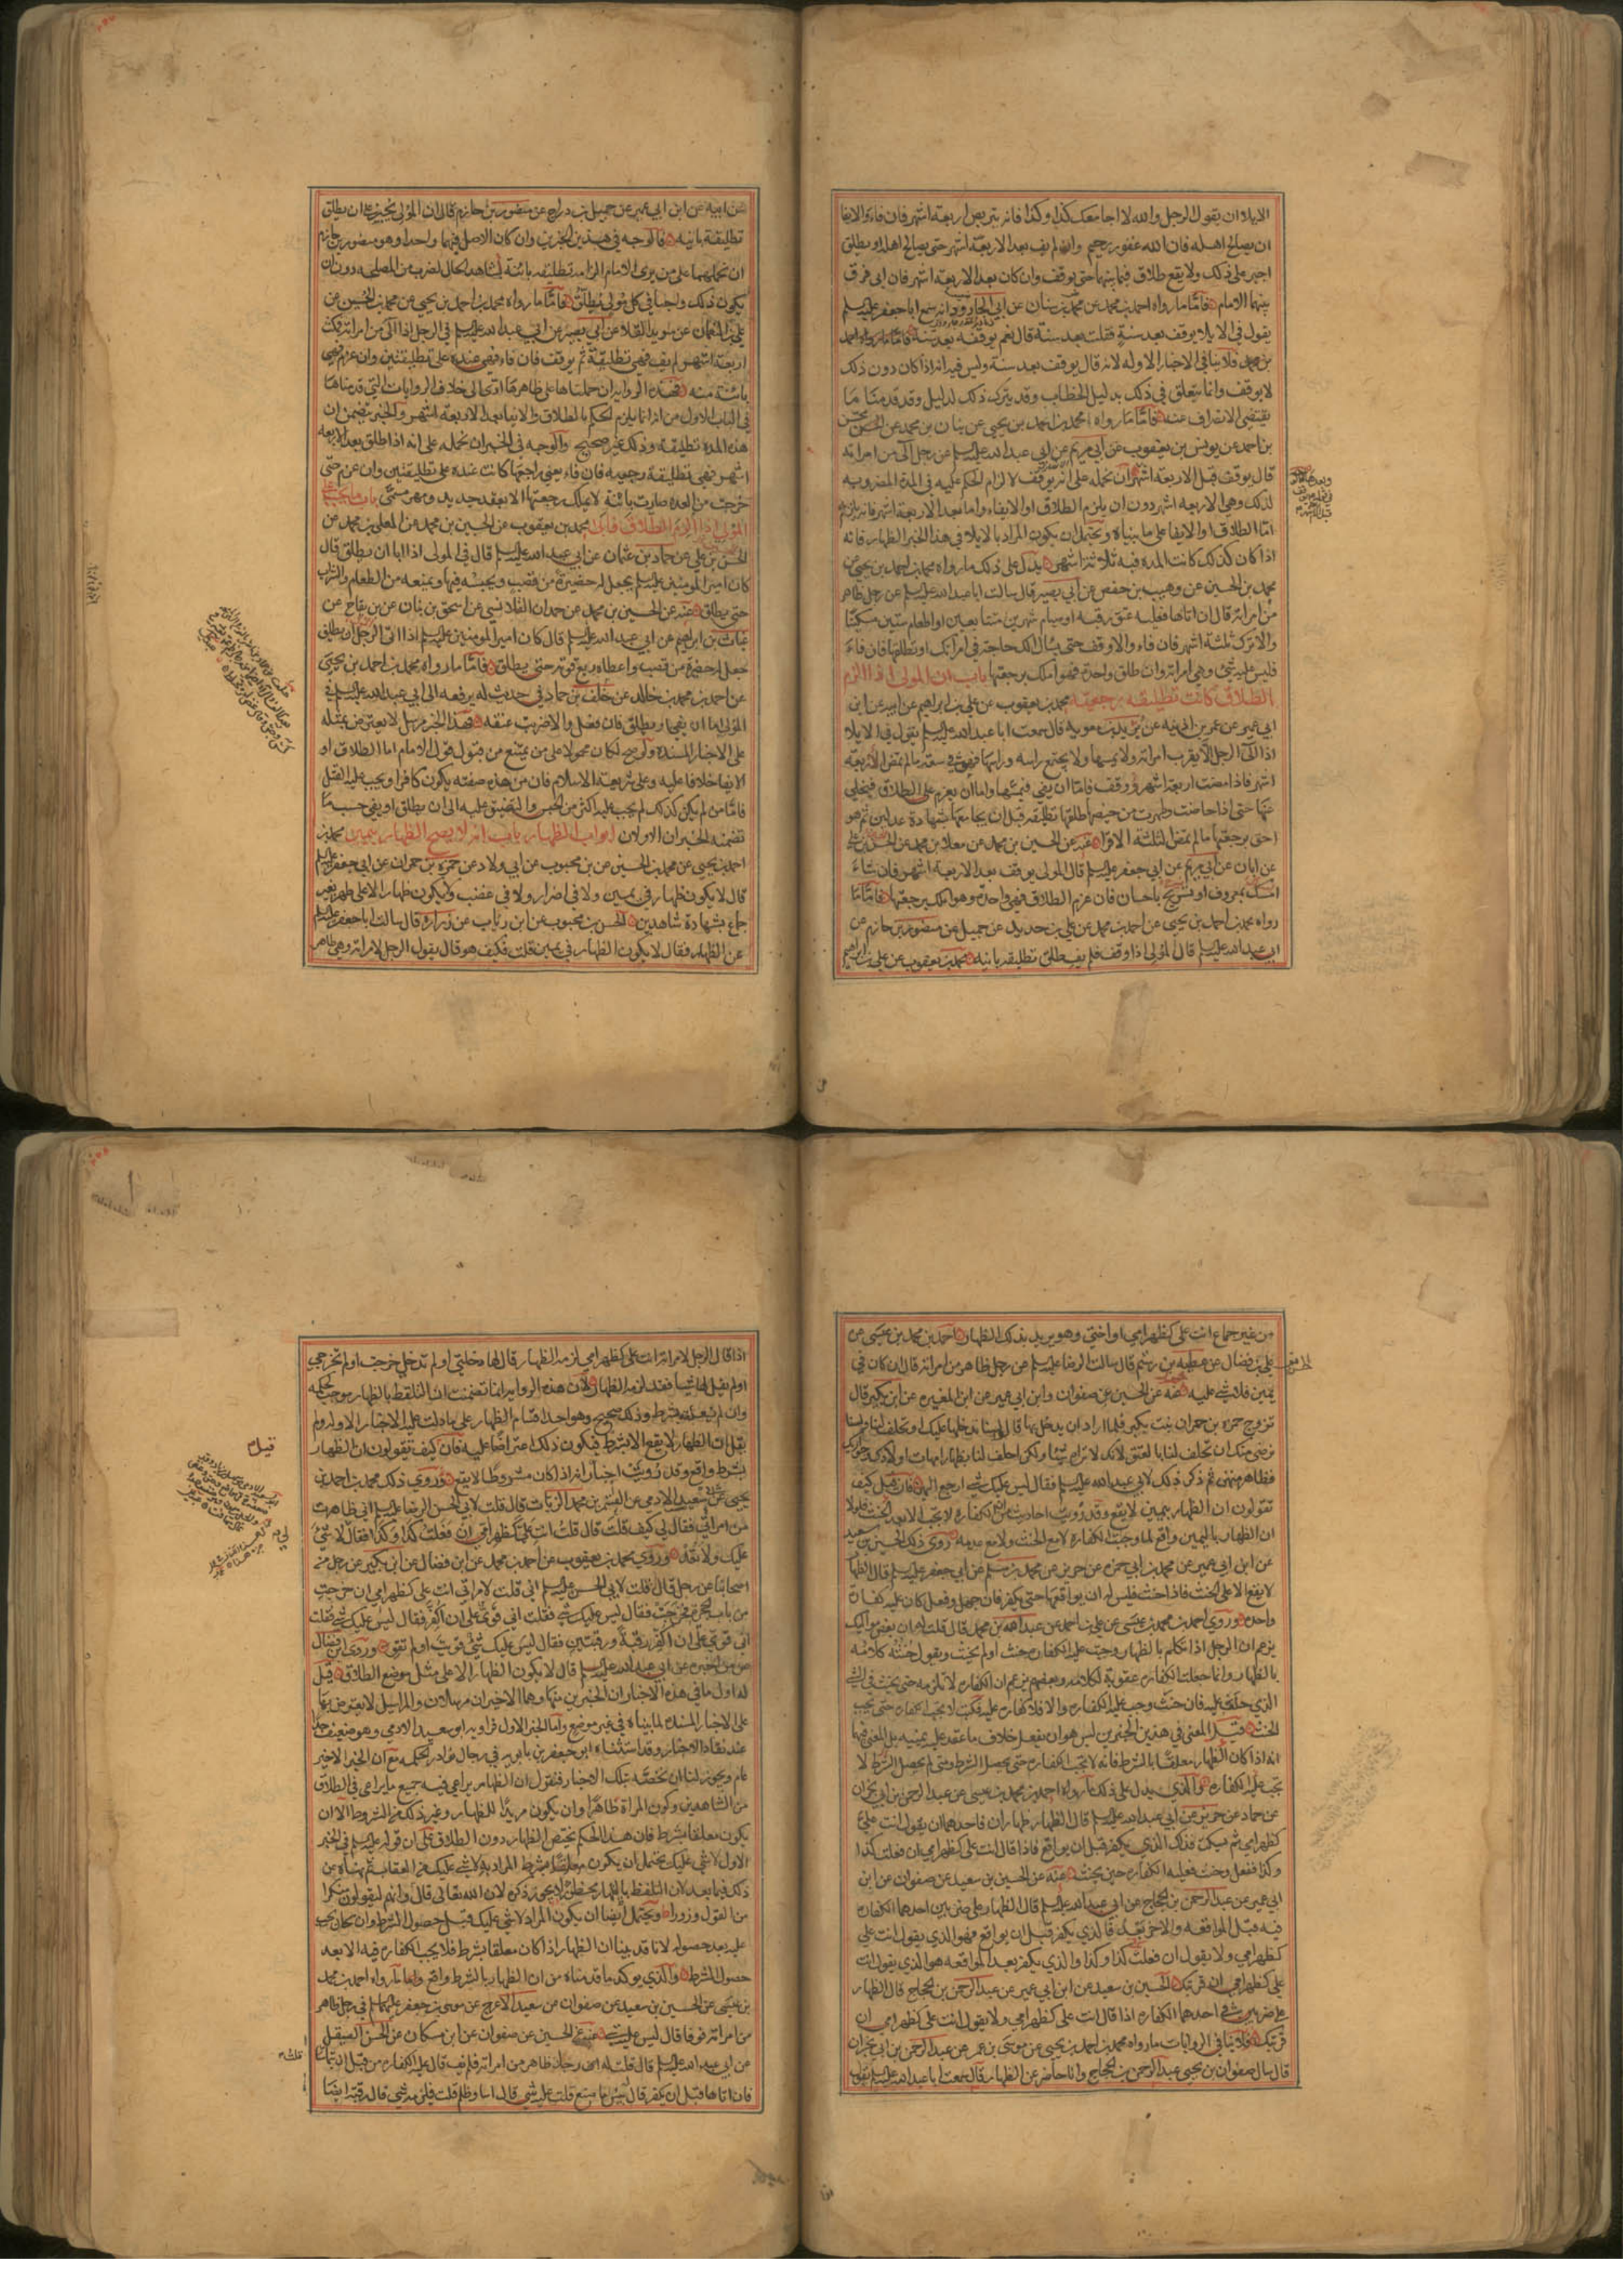 الايلاء ان يقول الرجل والله لا اجامعك كذا وكذا فانه يتربص اربعة اشهر فان فاء والايفا
ان يصالح اهله فان الله غفور رحيم وان لم يف بعد الاربعة اشهر حتى يصالح اهله او يطلق
اجبر على ذلك ولا يقع طلاق فيما بينهما حتى يوقف وان كان بعد الاربعة اشهر فان ابى فرق
بينهما الامام فاما ما رواه احمد بن محمد عن محمد بن سنان عن ابي الجارود انه سمع ابا جعفر عليه السلم
يقول في الايلا يوقف بعد سنة فقلت بعد سنة قال نعم يوقف بعد سنة
فلا ينافي الاخبار الاوله لانه قال يوقف بعد سنة وليس فيه انه اذا كان دون ذلك
لا يوقف وانما يتعلق في ذلك بدليل الخطاب وقد يترك ذلك لدليل وقد قدمنا ما
يقتضي الانصراف عنه فاما ما رواه محمد بن احمد بن يحيى عن بنان بن محمد عن
بن احمد عن يونس بن يعقوب عن ابي مريم عن ابي عبد الله عليه السلم عن رجل آلى من امراته
قال يوقف قبل الاربعة اشهر ان نحمله على انه يوقف لا لزام الحكم عليه في المدة المضروبه
لذلك وهي الاربعه اشهر دون ان يلزم الطلاق او الايفاء واما بعد الاربعة اشهر فانه يلزم
اما الطلاق او الايفا على ما بيناه ويحتمل ان يكون المراد بالايلا في هذا الخبر الظهار فانه
اذا كان كذلك كانت المده فيه ثلاثة اشهر يدل على ذلك ما رواه محمد بن احمد بن يحيى عن
محمد بن الحسين عن وهيب بن حفص عن ابي بصير قال سالت ابا عبد الله عليه السلم عن رجل ظاهر
من امراته قال ان اتاها فعليه عتق رقبه او صيام شهرين متتابعين او اطعام ستين مسكينا
والا ترك ثلثة اشهر فان فاء والا وقف حتى يسال الك حاجة في امراتك او تطلقها فان فاء
فليس عليه شئ وهي امراته وان طلق واحدة فهو املك برجعتها باب ان المولى اذا الزم
الطلاق كانت تطليقته رجعيه محمد بن يعقوب عن علي بن ابراهيم عن ابيه عن ابن
ابي عمير عن عمر بن اذينه عن بريد بن معويه قال سمعت ابا عبد الله عليه السلم يقول في الايلا
اذا آلى الرجل الا يقرب امراته ولا يمسها ولا يجتمع راسه وراسها فهو في سعة ما لم تمض الاربعة
اشهر فاذا مضت اربعة اشهر وقف فاما ان يفئ فيمسها واما ان يعزم على الطلاق فيخلي
عنها حتى اذا حاضت وطهرت من حيضها طلقها تطليقة قبل ان يجامعها بشهادة عدلين ثم هو
احق برجعتها ما لم تمض الثلثة الاقرا عنه عن الحسين بن محمد عن معلا بن محمد عن الحسن بن علي
عن ابان عن ابي مريم عن ابي جعفر عليه السلم قال المولي يوقف بعد الاربعة اشهر فان شاء
امساك بمعروف او تسريح باحسان فان عزم الطلاق فهي واحدة وهو املك برجعتها فاما ما
رواه محمد بن احمد بن يحيى عن احمد بن محمد عن علي بن حديد عن جميل عن منصور بن حازم عن
ابي عبد الله عليه السلم قال المولي اذا وقف فلم يف طلق تطليقه باينه محمد بن يعقوب عن علي بن ابراهيم
عن ابيه عن ابن ابي عمير عن جميل بن دراج عن منصور بن حازم قال ان المولي يجبر على ان يطلق
تطليقة باينه فالوجه في هذين الخبرين وان كان الاصل فيهما واحدا وهو منصور بن حازم
ان نحملهما على من يرى الامام الزامه تطليقة بائنة لشاهد الحال لضرب من المصلحه دون ان
يكون ذلك واجبا في كل مولي يطلق فاما ما رواه محمد بن احمد بن يحيى عن محمد بن الحسين عن
علي بن النعمان عن سويد القلا عن ابي بصير عن ابي عبد الله عليه السلم في الرجل اذا آلى من امراته فمكث
اربعة اشهر ولم يف فهي تطليقة ثم يوقف فان فاء فهي عنده على تطليقتين وان عزم فهي
بائنة منه فهذه الرواية ان حملناها على ظاهرها ادى الى خلاف الروايات التي قدمناها
في الباب الاول من انه انما يلزم الحكم بالطلاق والايفا بعد الاربعة اشهر والخبر يتضمن ان
هذه المده تطليقة وذلك غير صحيح والوجه في الخبر ان نحمله على انه اذا طلق بعد الاربعه
اشهر فهي تطليقة رجعيه فان فاء يعني راجعها كانت عنده على تطليقتين وان عزم حتى
خرجت من العده صارت بائنة لا يملك رجعتها الا بعقد جديد ومهر مسمى باب ما يجب على
المولي اذا الزم الطلاق فابى محمد بن يعقوب عن الحسين بن محمد عن المعلى بن محمد عن
الحسن بن علي عن حماد بن عثمان عن ابي عبد الله عليه السلم قال في المولي اذا ابا ان يطلق قال
كان امير المومنين عليه السلم يجعل له حضيرة من قصب ويحبسه فيها ويمنعه من الطعام والشراب
حتى يطلق عنه عن الحسين بن محمد عن حمدان القلانسي عن اسحق بن بنان عن بن بقاح عن
غياث بن ابراهيم عن ابي عبد الله عليه السلم قال كان امير المومنين عليه السلم اذا ابى الرجل ان يطلق
جعل له حضيرة من قصب واعطاه ربع قوته حتى يطلق فاما ما رواه محمد بن احمد بن يحيى
عن احمد بن محمد بن خالد عن خلف بن حماد في حديث له يرفعه الى ابي عبد الله عليه السلم في
المولي اما ان يفئ او يطلق فان فعل والا ضربت عنقه فهذا الخبر مرسل لا يعترض بمثله
على الاخبار المسنده ولو صح لكان محمولا على من يمتنع من قبول قول الامام اما الطلاق او
الايفا خلافا عليه وعلى شريعة الاسلام فان من هذه صفته يكون كافرا ويجب عليه القتل
فاما من لم يكن كذلك لم يجب عليه اكثر من الحبس والتضييق عليه الى ان يطلق او يفي حسب ما
تضمنه الخبران الاولان ابواب الظهار باب انه لا يصح الظهار بيمين محمد بن
احمد بن يحيى عن محمد بن الحسين عن بن محبوب عن ابي ولاد عن حمزه بن حمران عن ابي جعفر عليه السلم
قال لا يكون ظهار في يمين ولا في اضرار ولا في غضب ولا يكون ظهار الا على طهر بغير
جماع بشهادة شاهدين الحسن بن محبوب عن ابن رئاب عن زراره قال سالت ابا جعفر عليه السلم
عن الظهار فقال لا يكون الظهار في يمين قلت فكيف هو قال يقول الرجل لامراته وهي طاهر
من غير جماع انت علي كظهر امي او اختي وهو يريد بذلك الظهار احمد بن محمد بن عيسى عن
علي بن فضال عن عطيه بن رستم قال سالت الرضا عليه السلم عن رجل ظاهر من امراته قال ان كان في
يمين فلا شئ عليه عنه عن الحسين عن صفوان وابن ابي عمير عن ابن المغيره عن ابن بكير قال
تزوج حمزه بن حمران بنت بكير فلما اراد ان يدخل بها قال
نرضى منك ان تحلف لنا بالعتق لانك لا تراه شيئا ولكن احلف لنا بظهار امهات اولادك
فظاهر منهن ثم ذكر ذلك لابي عبد الله عليه السلم فقال ليس عليك شئ ارجع اليهن فان قيل كيف
تقولون ان الظهار بيمين لا يقع وقد رويت احاديث ان الكفاره لا تجب الا بعد الحنث فلولا
ان الظهار باليمين واقع لما وجبت الكفاره لا مع الحنث ولا مع عدمه روى ذلك الحسين بن سعيد
عن ابن ابي عمير عن محمد بن ابي حمزه عن حريز عن محمد بن مسلم عن ابي جعفر عليه السلم قال الظهار
لا يقع الا على الحنث فاذا حنث فليس له ان يواقعها حتى يكفر فان جهل وفعل كان عليه كفارة
واحده وروى احمد بن محمد بن عيسى عن علي بن احمد عن عبد الله بن محمد قال قلت له ان بعض مواليك
يزعم ان الرجل اذا تكلم بالظهار وجبت عليه الكفاره حنث او لم يحنث ويقول حنثه كلامه
بالظهار وانما جعلت الكفاره عقوبة لكلامه وبعضهم يزعم ان الكفاره لا تلزمه حتى يحنث في الشئ
الذي حلف عليه فان حنث وجب عليه الكفاره والا فلا كفاره عليه فكتب لا يجب الكفاره حتى يجب
الحنث قيل المعنى في هذين الخبرين ليس هو ان يفعل خلاف ما عقد عليه يمينه بل المعنى فيها
انه اذا كان الظهار معلقا بالشرط فانه لا تجب الكفاره حتى يحصل الشرط ومتى لم يحصل الشرط لا
تجب عليه الكفاره والذي يدل على ذلك ما رواه احمد بن محمد بن عيسى عن عبد الرحمن بن ابي نجران
عن حماد عن حريز عن ابي عبد الله عليه السلم قال الظهار ظهاران فاحدهما ان يقول انت علي
كظهر امي ثم يسكت فذلك الذي يكفر قبل ان يواقع فاذا قال انت علي كظهر امي ان فعلت كذا
وكذا ففعل وحنث فعليه الكفاره حين يحنث عنه عن الحسين بن سعيد عن صفوان عن ابن
ابي عمير عن عبد الرحمن بن الحجاج عن ابي عبد الله عليه السلم قال الظهار على ضربين احدهما الكفاره
فيه قبل المواقعه والاخر بعده فالذي يكفر قبل ان يواقع فهو الذي يقول انت علي
كظهر امي ولا يقول ان فعلت كذا وكذا والذي يكفر بعد المواقعه هو الذي يقول انت
علي كظهر امي ان قربتك الحسين بن سعيد عن ابن ابي عمير عن عبد الرحمن بن الحجاج قال الظهار
على ضربين في احدهما الكفاره اذا قال انت علي كظهر امي ولا يقول انت علي كظهر امي ان
قربتك فلا ينافي الروايات ما رواه محمد بن احمد بن يحيى عن موسى بن عمر عن عبد الرحمن بن ابي نجران
قال سال صفوان بن يحيى عبد الرحمن بن الحجاج وانا حاضر عن الظهار قال سمعت ابا عبد الله عليه السلم يقول
اذا قال الرجل لامراته انت علي كظهر امي لزمه الظهار قال لها دخلتي او لم تدخلي خرجت او لم تخرجي
او لم يقل لها شيئا فقد لزمه الظهار لان هذه الرواية انما تضمنت ان التلفظ بالظهار موجب لحكمه
وان لم يعلقه بشرط وذلك صحيح وهو احد اقسام الظهار على ما دلت عليه الاخبار الاوله ولم
يقل ان الظهار لا يقع الا بشرط فيكون ذلك اعتراضا عليه فان كيف تقولون ان الظهار
بشرط واقع وقد رويت اخبارا انه اذا كان مشروطا لا يقع روى ذلك محمد بن احمد بن
يحيى عن ابي سعيد الادمي عن القسم بن محمد الزيات قال قلت لابي الحسن الرضا عليه السلم اني ظاهرت
من امراتي فقال لي كيف قلت قال قلت انت علي كظهر امي ان فعلت كذا وكذا فقال لا شئ
عليك ولا تعد وروى محمد بن يعقوب عن احمد بن محمد عن ابن فضال عن ابن بكير عن رجل من
اصحابنا عن رجل قال قلت لابي الحسن عليه السلم اني قلت لامراتي انت علي كظهر امي ان خرجت
من باب الحجرة فخرجت فقال ليس عليك شئ فقلت اني قوي على ان اكفر فقال ليس عليك شئ فقلت
اني قوي على ان اكفر رقبة ورقبتين فقال ليس عليك شئ قويت او لم تقو وروى ابن فضال
عمن اخبره عن ابي عبد الله عليه السلم قال لا يكون الظهار الا على مثل موضع الطلاق قيل
له اول ما في هذه الاخبار ان الخبرين منها وهما الاخيران مرسلان والمراسيل لا يعترض بها
على الاخبار المسنده لما بيناه في غير موضع واما الخبر الاول فراويه ابو سعيد الادمي وهو ضعيف جدا
عند نقاد الاخبار وقد استثناه ابو جعفر بن بابويه في رجال نوادر الحكمه مع ان الخبر الاخير
عام ويجوز لنا ان نخصه بتلك الاخبار فنقول ان الظهار يراعى فيه جميع ما يراعى في الطلاق
من الشاهدين وكون المراة طاهرا وان يكون مريدا للظهار وغير ذلك من الشروط الا ان
يكون معلقا بشرط فان هذا الحكم يختص الظهار دون الطلاق على ان قوله عليه السلم في الخبر
الاول لا شئ عليك يحتمل ان يكون المراد به لا شئ عليك من العقاب ثم نهاه عن
ذلك فيما بعد لان التلفظ بالظهار محظور لا يجوز ذكره لان الله تعالى قال وانهم ليقولون منكرا
من القول وزورا ويحتمل ايضا ان يكون المراد لا شئ عليك قبل حصول الشرط وان كان يجب
عليه بعد حصوله لانا قد بينا ان الظهار اذا كان معلقا بشرط فلا يجب الكفاره فيه الا بعد
حصول الشرط والذي يوكد ما قدمناه من ان الظهار بالشرط واقع ما رواه احمد بن محمد
بن عيسى عن الحسين بن سعيد عن صفوان عن سعيد الاعرج عن موسى بن جعفر عليهما السلم في رجل ظاهر
من امراته فوفا قال ليس عليه شئ عنه عن الحسين عن صفوان عن ابن مسكان عن الحسن الصيقل
عن ابي عبد الله عليه السلم قال قلت له رجل ظاهر من امراته فلم يف قال عليه الكفاره من قبل ان يتماسا
فان اتاها قبل ان يكفر قال بئس ما صنع قلت عليه شئ قال اسا وظلم قلت فيلزمه شئ قال رقبة ايضا